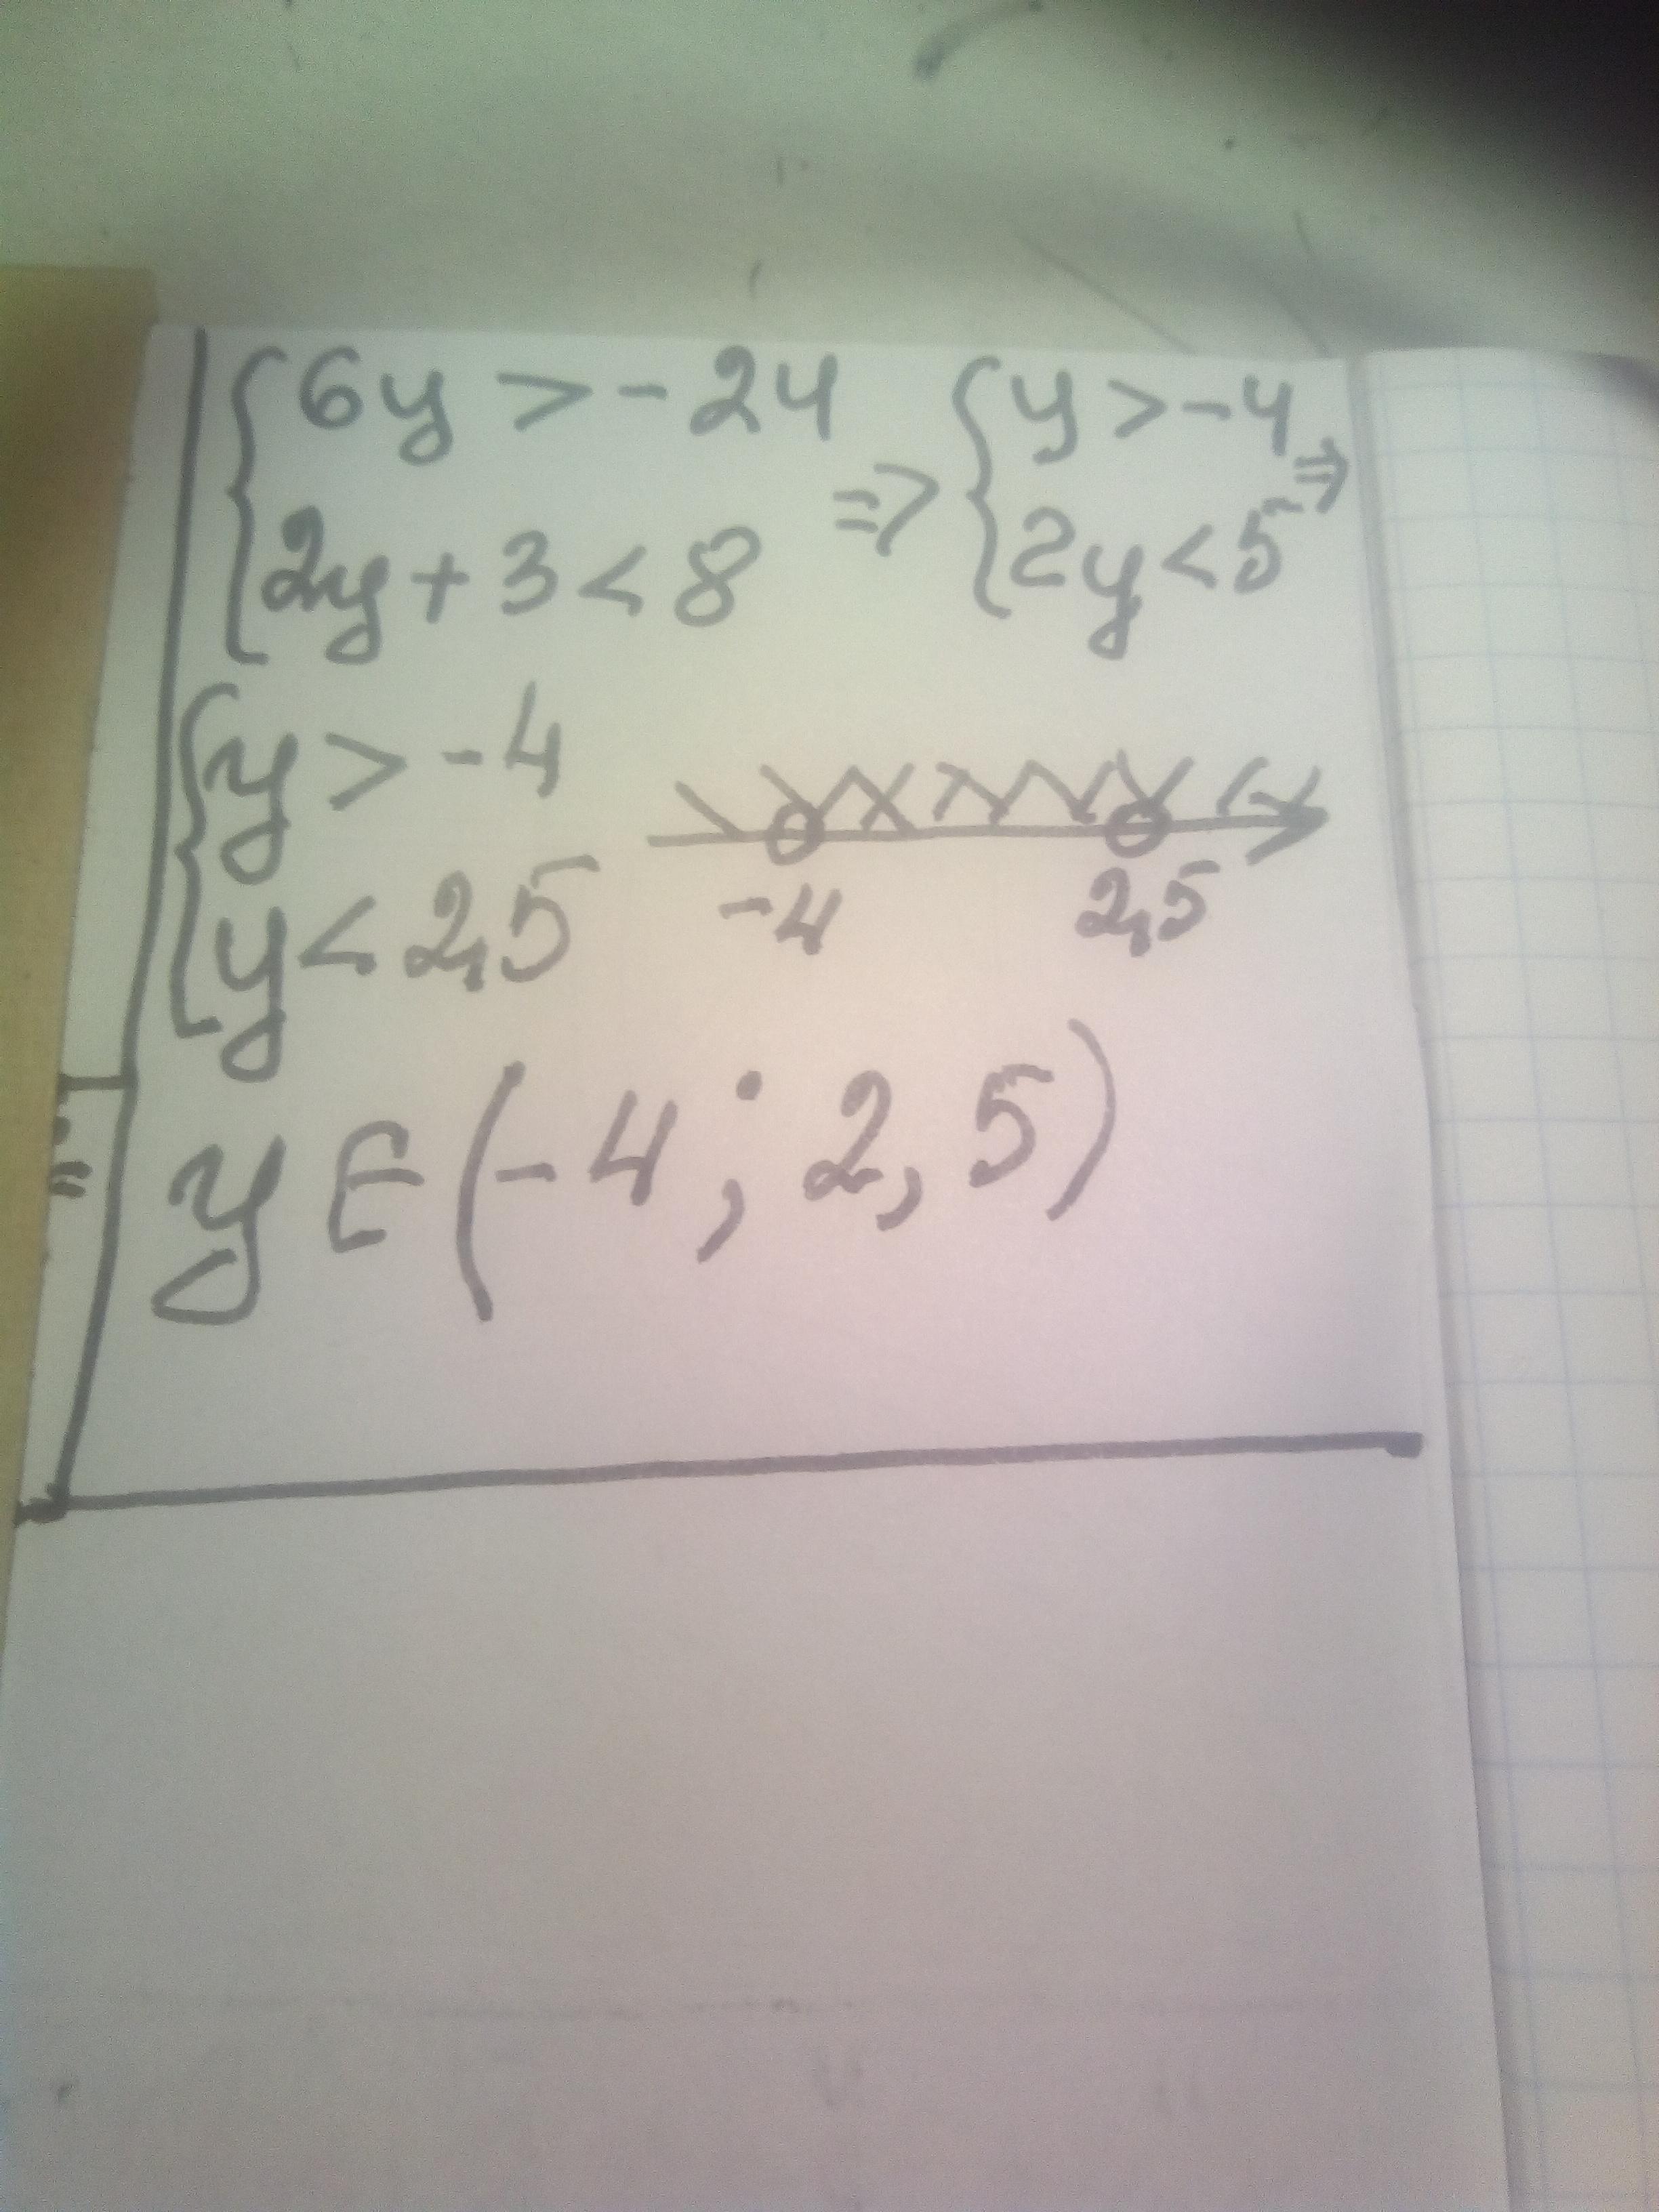 {6y > -24 => {y > -4 =>
{2y + 3 < 8 {2y < 5
{y > -4
{y < 2,5 -4 2,5
y ∈ (-4; 2,5)